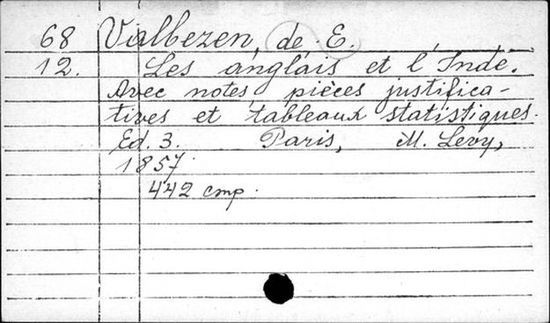 68 Valbezen, de E.
12. Les anglais et l'Inde.
Avec notes pièces justifica-
tives et tableaux statistiques.
Ed. 3. Paris, M. Levy,
1857.
442 стр.